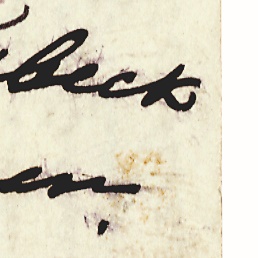 beck
en.